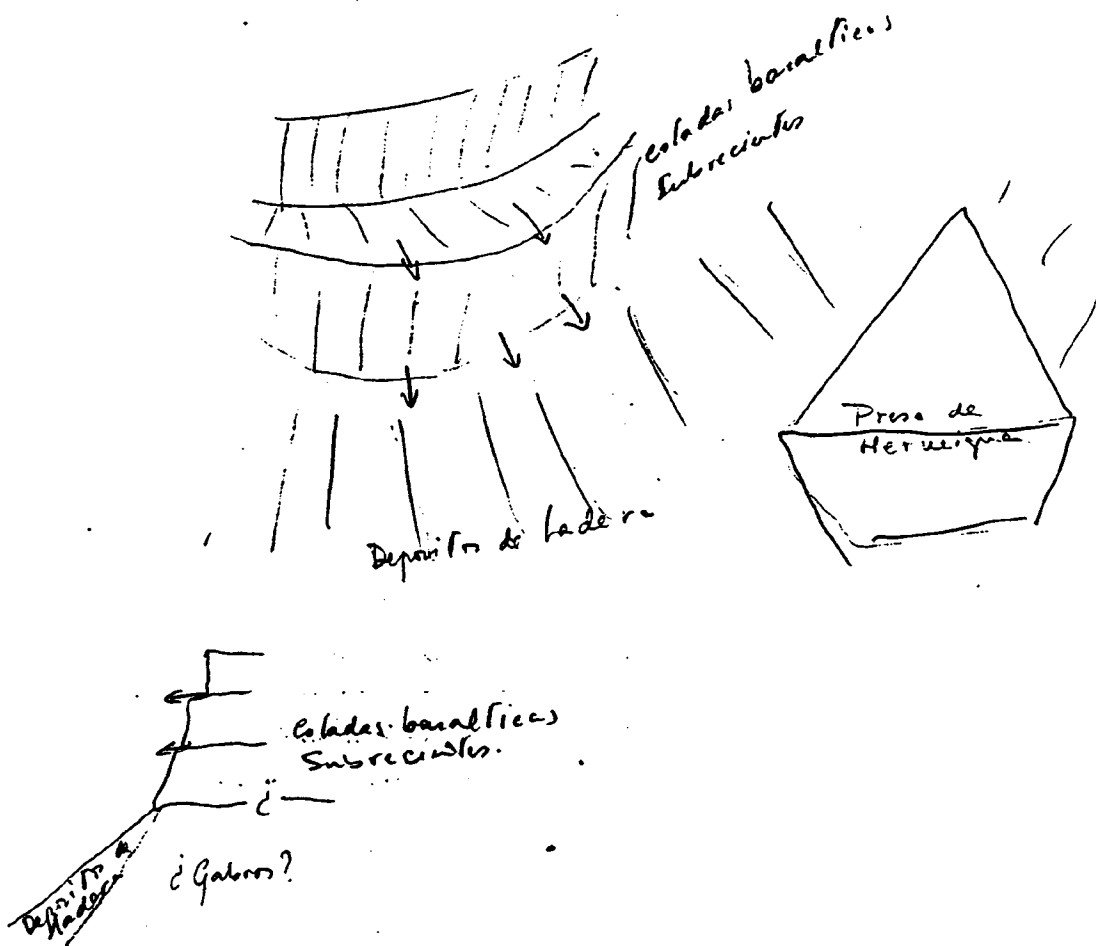 coladas basalticas
Subrecientes
Presa de
Hermigua
Depositos de Ladera
coladas basalticas
Subrecientes.
¿
¿Gabros?
Deposito de
Ladera